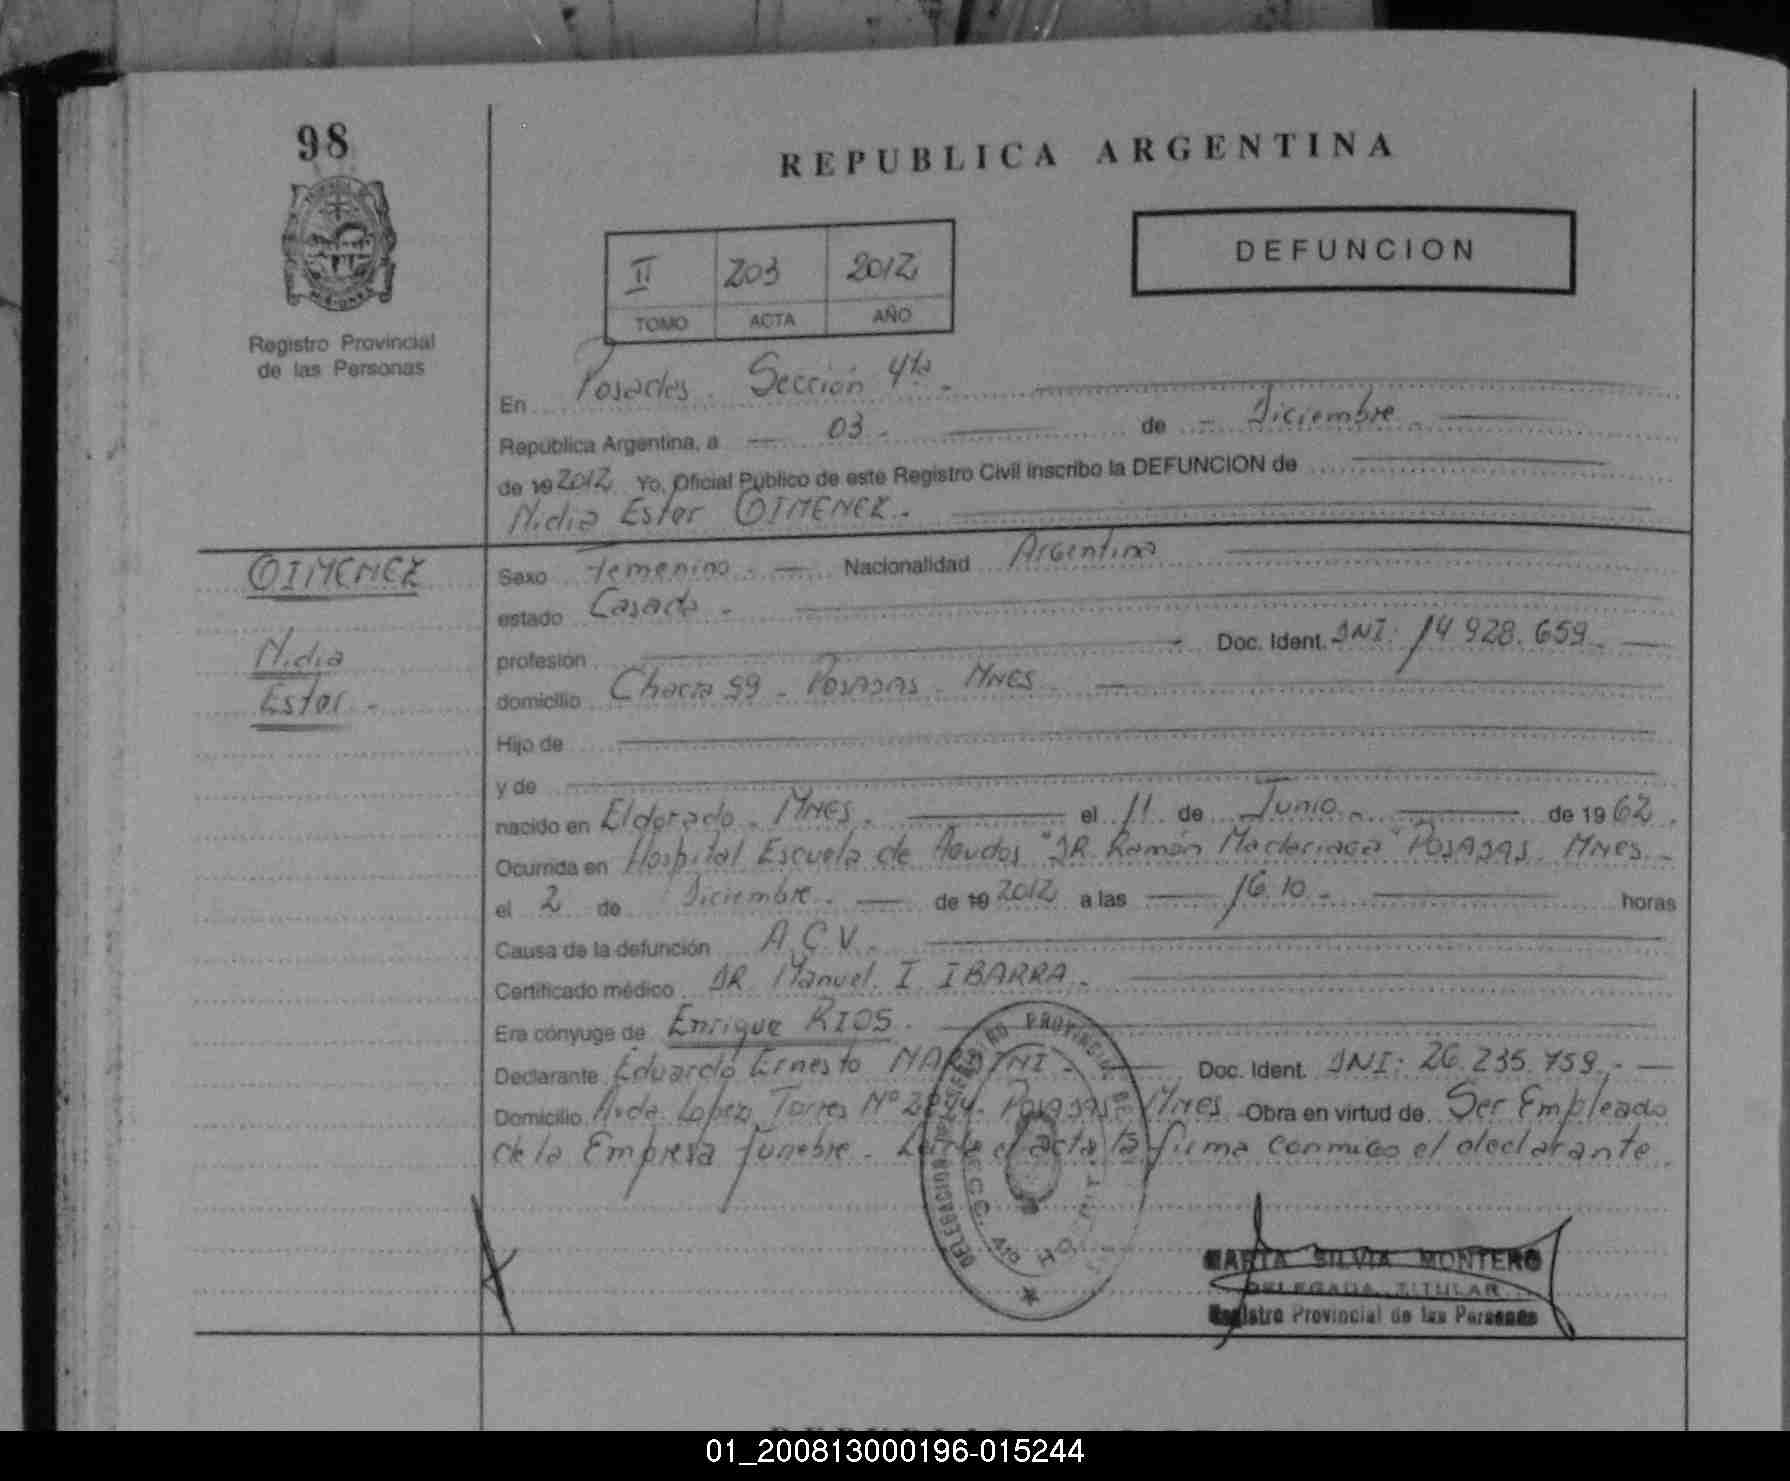 98
REPUBLICA ARGENTINA
DEFUNCION
II 203 2012
TOMO ACTA AÑO
Registro Provincial
de las Personas
En Posadas. Sección 4ta.
República Argentina, a 03. de Diciembre.
de 19 2012 Yo, Oficial Público de este Registro Civil inscribo la DEFUNCION de
Nidia Ester GIMENEZ.
GIMENEZ
Nidia
Ester.
Sexo Femenino. Nacionalidad Argentina
estado Casada.
profesión Doc. Ident. DNI: 14 928.659.
domicilio Chacra 99. Posadas. Mnes.
Hijo de
y de
nacido en Eldorado. Mnes. el 11 de Junio. de 19 62.
Ocurrida en Hospital Escuela de Agudos "DR. Ramón Madariaga" Posadas. Mnes.
el 2 de Diciembre. de 19 2012 a las 16.10. horas
Causa de la defunción A.C.V.
Certificado médico DR. Manuel. I. IBARRA.
Era cónyuge de Enrique RIOS.
Declarante Eduardo Ernesto Doc. Ident. DNI: 26.235.759.
Domicilio Avda. Lopez Torres Nº Posadas. Mnes. Obra en virtud de Ser Empleado
de la Empresa funebre. Leida el acta la firma conmigo el declarante.
DELEGACION
MARTA SILVIA MONTERO
DELEGADA TITULAR
Registro Provincial de las Personas
01_200813000196-015244